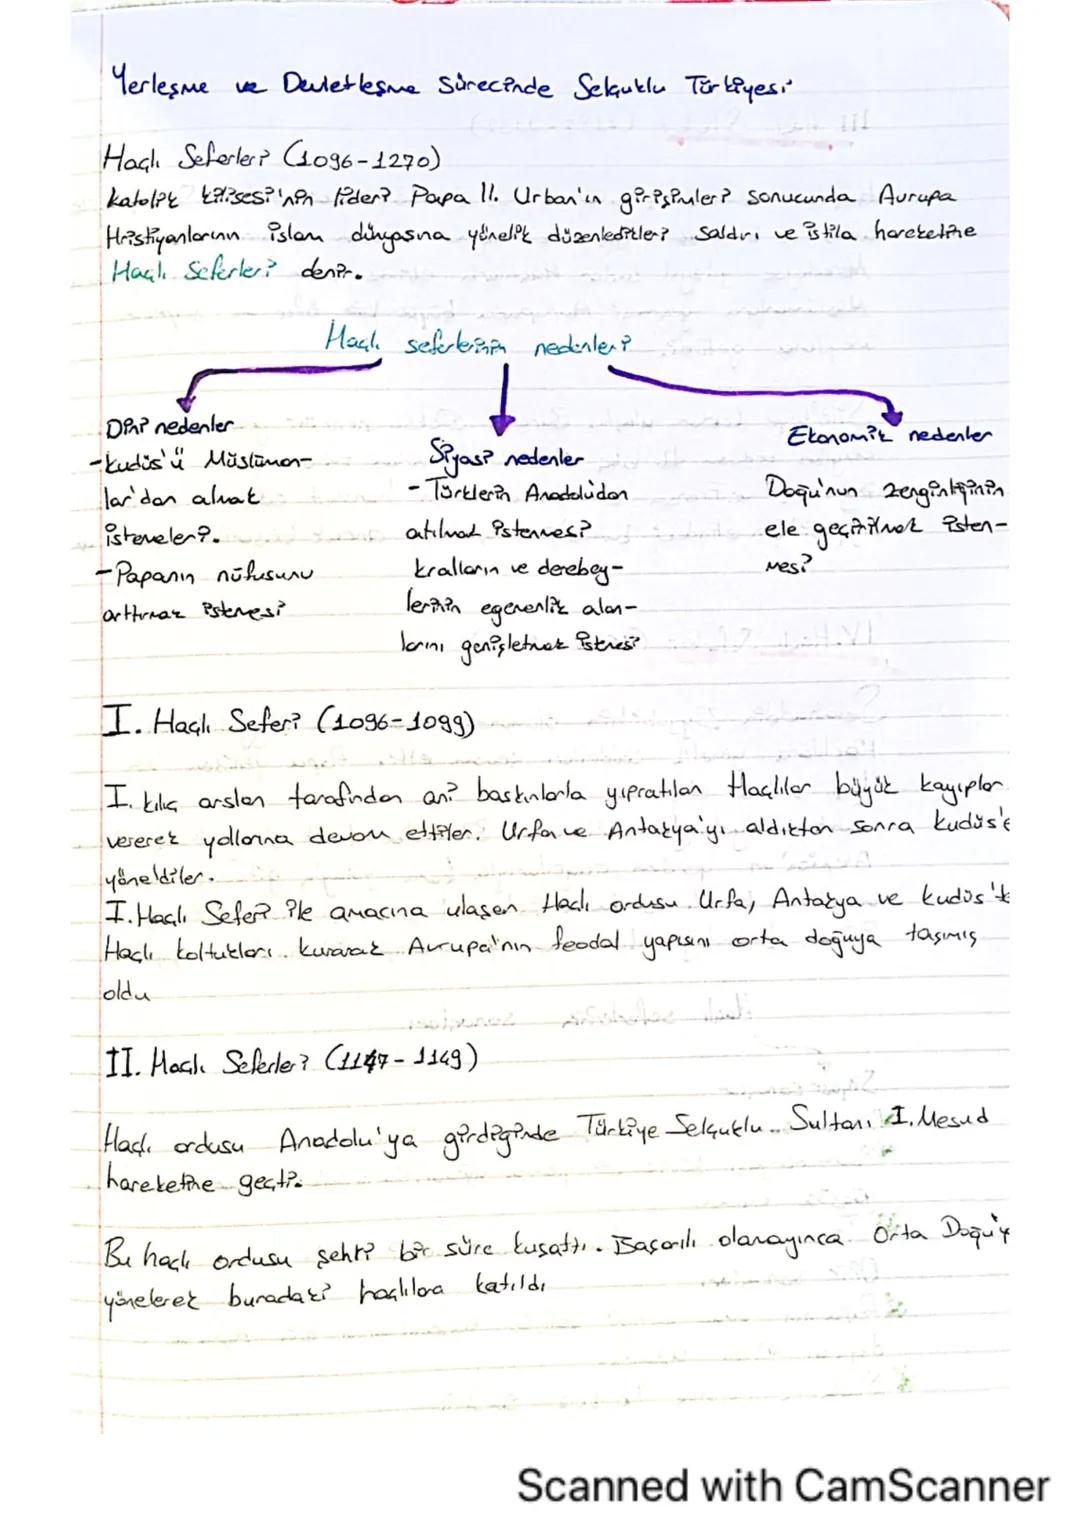 Yerleşme ve Devletleşme Sürecinde Selçuklu Türkiyesi
Haçlı Seferleri (1096-1270)
Katolik kilisesi'nin lideri Papa II. Urban'ın girişimleri sonucunda Avrupa
Hristiyanlarının islam dünyasına yönelik düzenledikleri saldırı ve istila hareketine
Haçlı Seferleri denir.
Haçlı seferlerinin nedenleri
Dini nedenler
-Kudüs'ü Müslüman-
lar'dan almak
istemeleri.
-Papanın nüfusunu
arttırmak istemesi
Siyasi nedenler
-Türklerin Anadoludan
atılmak istenmesi
kralların ve derebey-
lerinin egemenlik alan-
larını genişletmek istmesi
Ekonomik nedenler
Doğu'nun zenginliğinin
ele geçirilmek isten-
mesi
I. Haçlı Seferi (1096-1099)
I. Kılıç arslan tarafından ani baskınlarla yıpratılan Haçlılar büyük kayıplar
vererek yollarına devam ettiler. Urfa ve Antakya'yı aldıktan sonra Kudüs'e
yöneldiler.
I. Haçlı Seferi ile amacına ulaşan Haclı ordusu Urfa, Antakya ve Kudüs'te
Haçlı koltukları kurarak Avrupa'nın feodal yapısını orta doğuya taşımış
oldu
II. Haçlı Seferleri (1147-1149)
Haçlı ordusu Anadolu'ya girdiğinde Türkiye Selçuklu Sultanı I. Mesud
hareketine geçti.
Bu haçlı ordusu şehri bir süre kuşattı. Başarılı olamayınca Orta Doğu'y
yönelerek buradaki haçlılara katıldı
Scanned with CamScanner